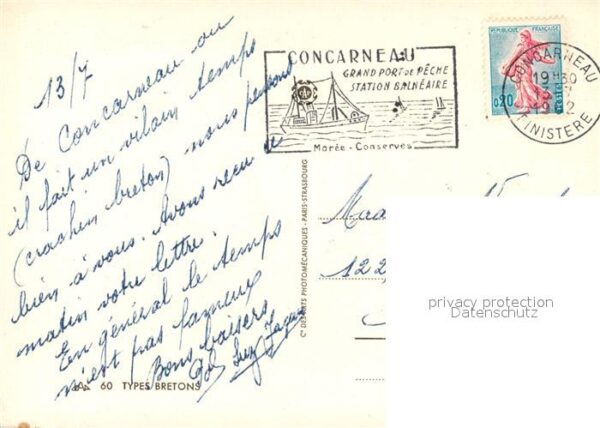 13/7
De Concarneau ou
il fait un vilain temps
(crachin breton) nous pensons
bien à vous. Avons reçu ce
matin votre lettre.
En général le temps
n'est pas fameux
Bons baisers
60 TYPES BRETONS
Cie DES ARTS PHOTOMÉCANIQUES - PARIS-STRASBOURG
CONCARNEAU
GRAND PORT DE PÊCHE
STATION BALNÉAIRE
Marée - Conserves
REPUBLIQUE FRANÇAISE
0,20
CONCARNEAU
19H30
FINISTERE
122
privacy protection
Datenschutz